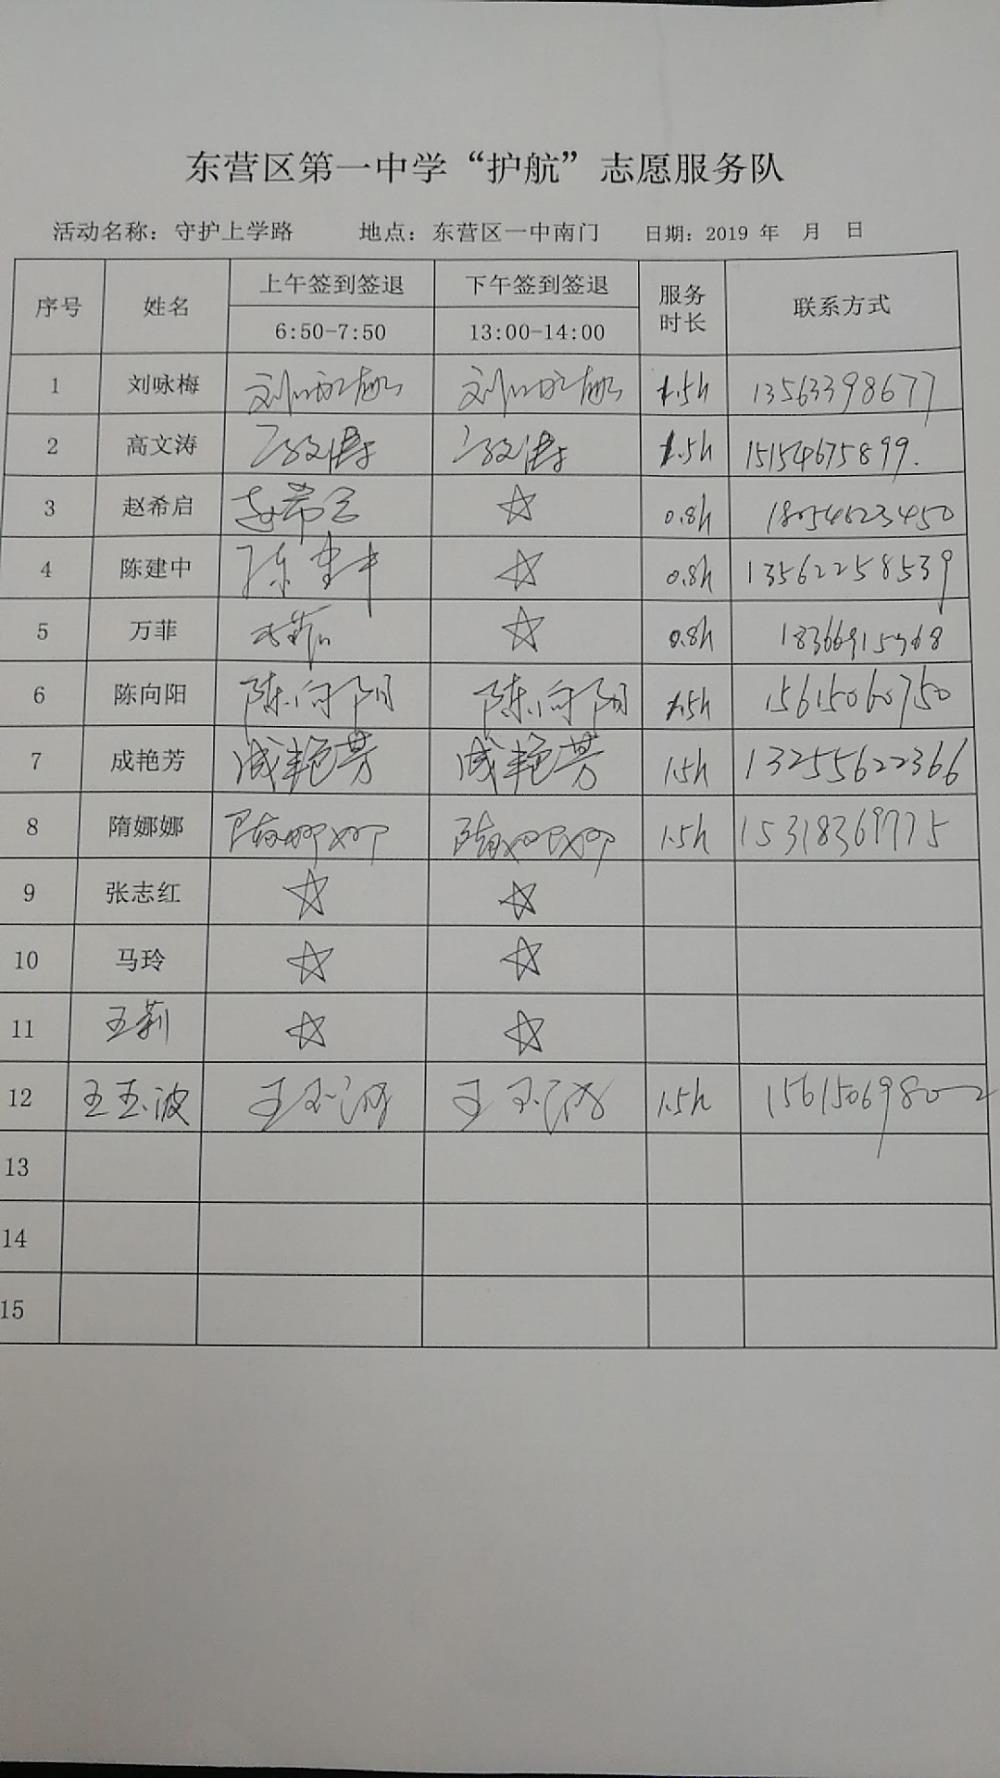 东营区第一中学“护航”志愿服务队
活动名称：守护上学路 地点：东营区一中南门 日期：2019 年 月 日
序号 姓名 上午签到签退 下午签到签退 服务时长 联系方式
6:50-7:50 13:00-14:00
1 刘咏梅 刘咏梅 刘咏梅 1.5h 13563398677
2 高文涛 高文涛 高文涛 1.5h 15154675899.
3 赵希启 赵希启 ☆ 0.8h 18054623450
4 陈建中 陈建中 ☆ 0.8h 13562258539
5 万菲 万菲 ☆ 0.8h
6 陈向阳 陈向阳 陈向阳 1.5h 15615060750
7 成艳芳 成艳芳 成艳芳 1.5h 13255622366
8 隋娜娜 隋娜娜 隋娜娜 1.5h 15318369775
9 张志红 ☆ ☆
10 马玲 ☆ ☆
11 王莉 ☆ ☆
12 王玉波 王玉波 王玉波 1.5h 15615069802
13
14
15